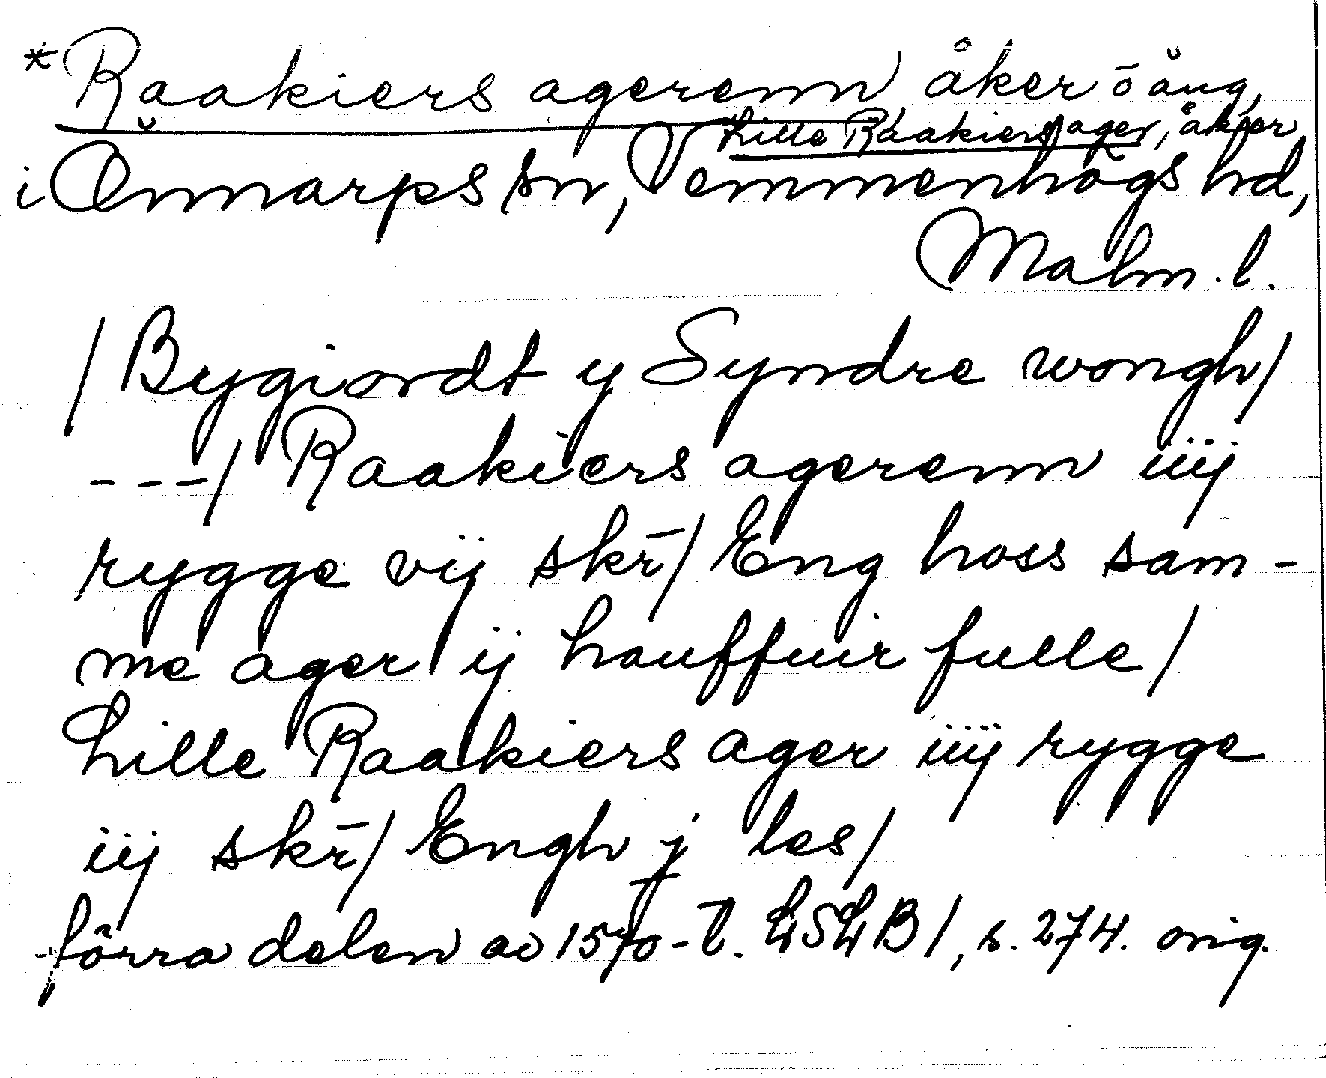 *Raakiers agerenn, åker o äng,
Lille Raakiers ager, åker
i Önnarps sn, Vemmenhögs hd,
Malm. l.
/Bygiordt y Syndre wongh/
---/ Raakiers agerenn iiij
rygge vij skr̄/ Eng hoss sam-
me ager ij houffuir fulle/
Lille Raakiers ager iiij rygge
iij skr̄/ Engh j les/
förra delen av 1570-t. LSLB1, s. 274. orig.